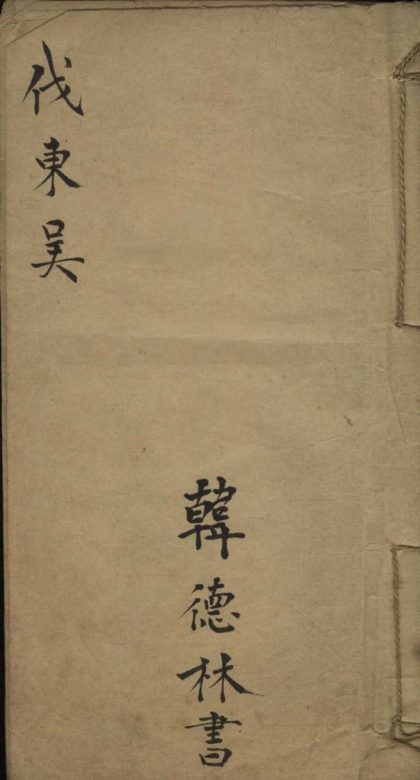 伐東吳
韓德林書